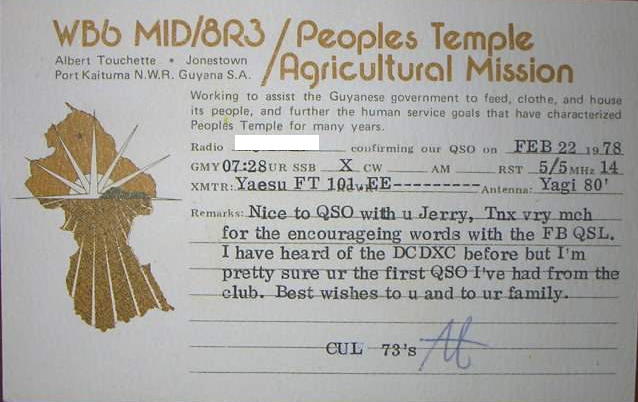 WB6 MID/8R3 / Peoples Temple
Agricultural Mission
Albert Touchette • Jonestown
Port Kaituma N.W.R. Guyana S.A.
Working to assist the Guyanese government to feed, clothe, and house
its people, and further the human service goals that have characterized
Peoples Temple for many years.
Radio confirming our QSO on FEB 22 1978
GMT 07:28 UR SSB X CW AM RST 5/5 MHz 14
XMTR: Yaesu FT 101 EE---------- Antenna: Yagi 80'
Remarks: Nice to QSO with u Jerry, Tnx vry mch
for the encourageing words with the FB QSL.
I have heard of the DCDXC before but I'm
pretty sure ur the first QSO I've had from the
club. Best wishes to u and to ur family.
CUL 73's